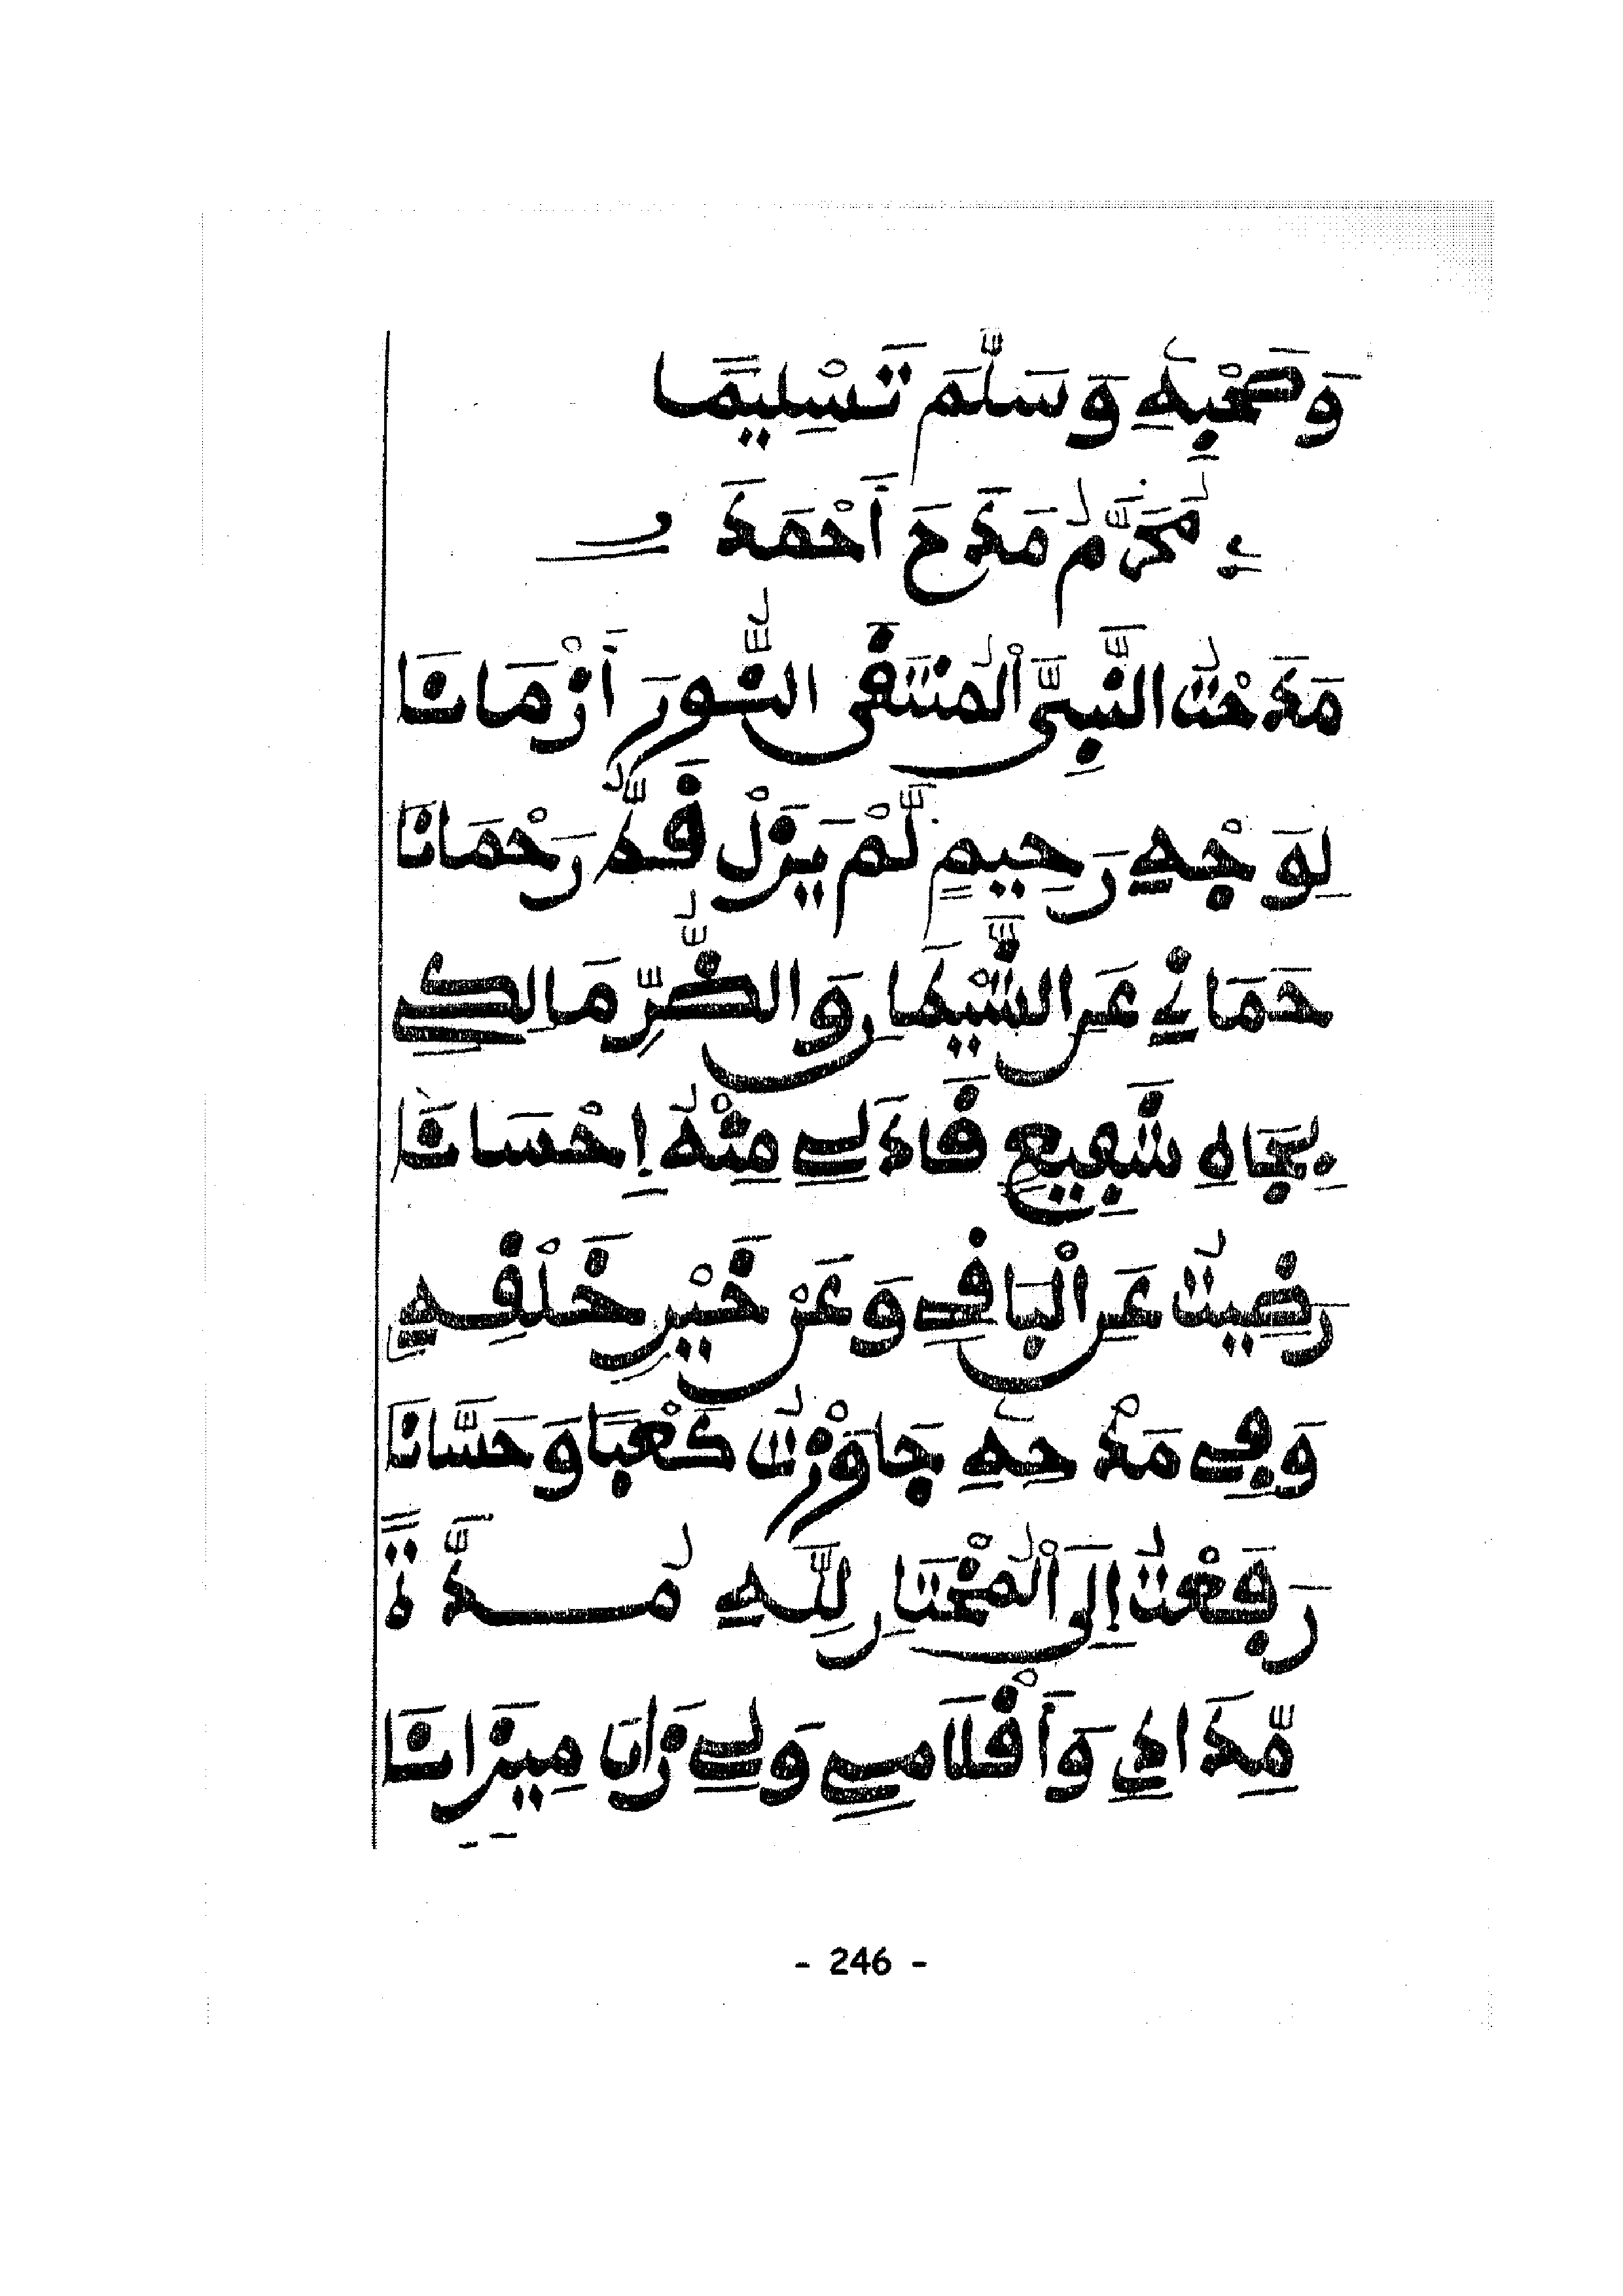 وَصَحْبِهِ وَسَلَّمَ تَسْلِيمًا
مُحَرَّمُ مَدَحَ أَحْمَدَ
مَدَحْتُ النَّبِيَّ الْمُنْتَقَى النُّورَ أَزْمَانَا
لِوَجْهِ رَحِيمٍ لَّمْ يَزَلْ قَطُّ رَحْمَانَا
حَمَانِي عَنِ الشَّيْطَانِ وَالضُّرِّ مَالِكِي
بِجَاهِ شَفِيعٍ قَادَ لِي مِنْهُ إِحْسَانَا
رَضِيتُ عَنِ الْبَاقِي وَعَنْ خَيْرِ خَلْقِهِ
وَفِي مَدْحِهِ جَاوَزْتُ كَعْبًا وَحَسَّانَا
رَفَعْتُ إِلَى الْمُخْتَارِ لِلَّهِ مُدَّةً
مِّدَادِي وَأَقْلَامِي وَلِي زَانَ مِيزَانَا
- 246 -